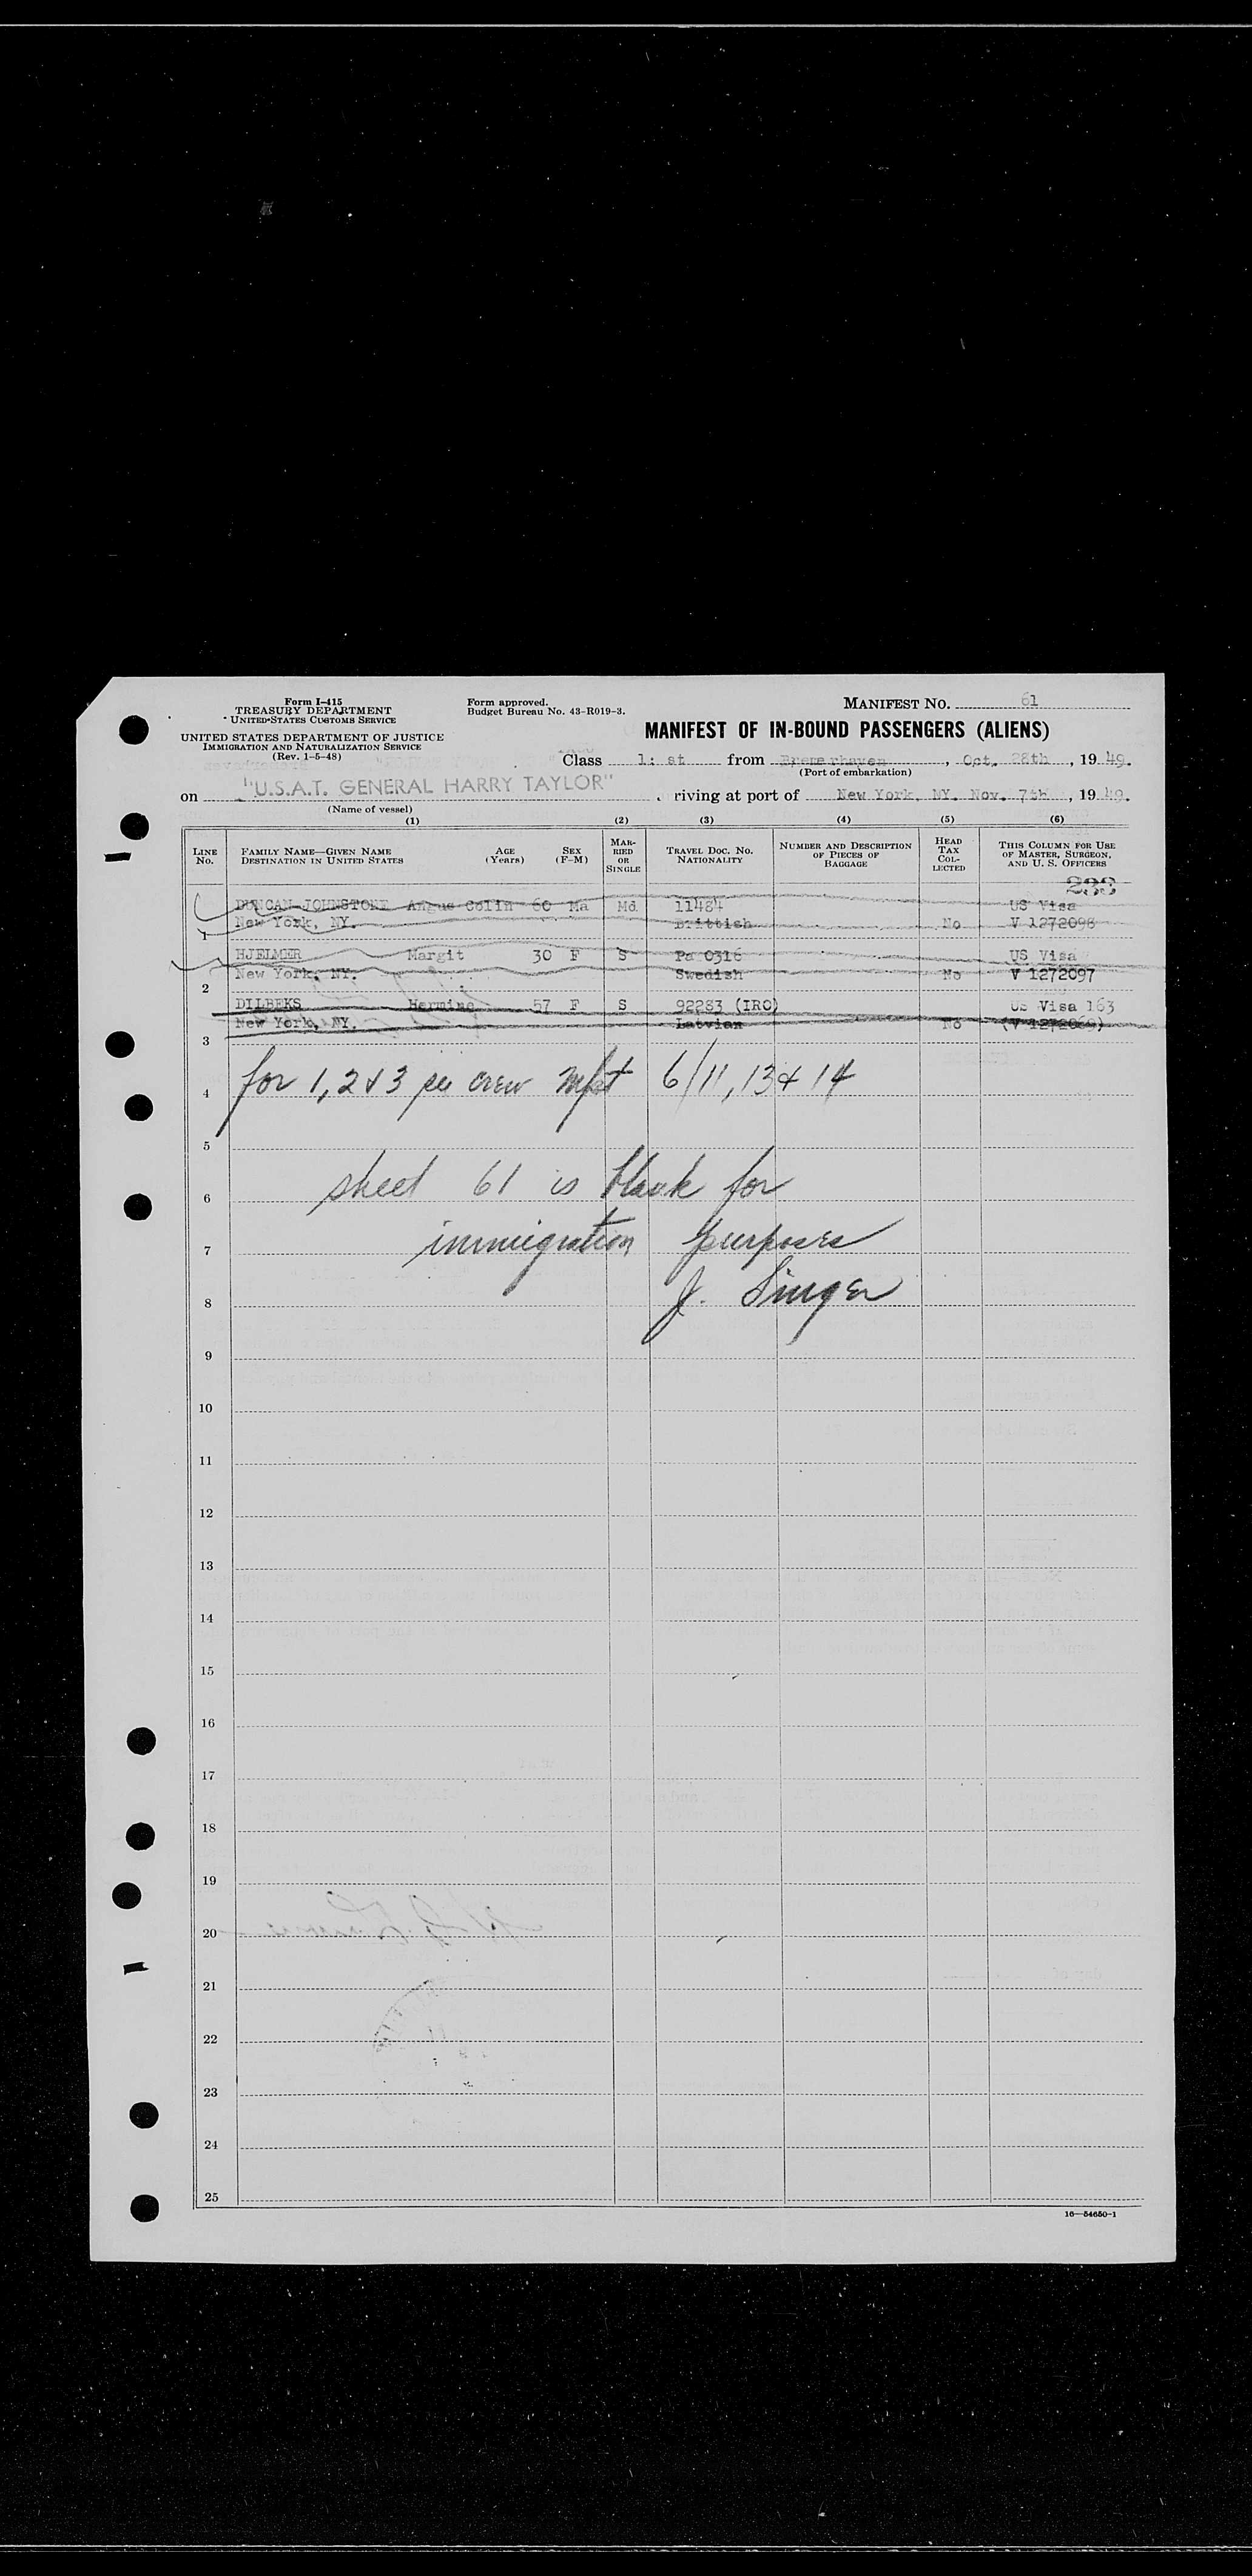 Form I-415
TREASURY DEPARTMENT
UNITED STATES CUSTOMS SERVICE
UNITED STATES DEPARTMENT OF JUSTICE
IMMIGRATION AND NATURALIZATION SERVICE
(Rev. 1-5-48)
Form approved.
Budget Bureau No. 43-R019-3.
MANIFEST NO. 61
MANIFEST OF IN-BOUND PASSENGERS (ALIENS)
Class 1: st from Bremerhaven, Oct. 28th, 19 49.
(Port of embarkation)
on "U.S.A.T. GENERAL HARRY TAYLOR", riving at port of New York, NY. Nov. 7th, 19 49.
(Name of vessel)
(1) (2) (3) (4) (5) (6)
LINE No. FAMILY NAME—GIVEN NAME DESTINATION IN UNITED STATES AGE (Years) SEX (F-M) MARRIED OR SINGLE TRAVEL DOC. NO. NATIONALITY NUMBER AND DESCRIPTION OF PIECES OF BAGGAGE HEAD TAX COLLECTED THIS COLUMN FOR USE OF MASTER, SURGEON, AND U. S. OFFICERS
DUNCAN JOHNSTONE Angus Colin 60 Md 11484 US Visa
1 New York, NY. Brittish No V 1272098
HJELMER Margit 30 F S Pa 0316 US Visa
2 New York, NY. Swedish No V 1272097
DILBEKS Hermine 57 F S 92283 (IRO) US Visa 163
3 New York, NY. Latvian No (V 1272069)
4 for 1, 2 & 3 see crew mfst 6/11, 13 & 14
5
6 sheet 61 is blank for
7 immigration purposes
8 J. Singer
9
10
11
12
13
14
15
16
17
18
19
20
21
22
23
24
25
16—54650-1